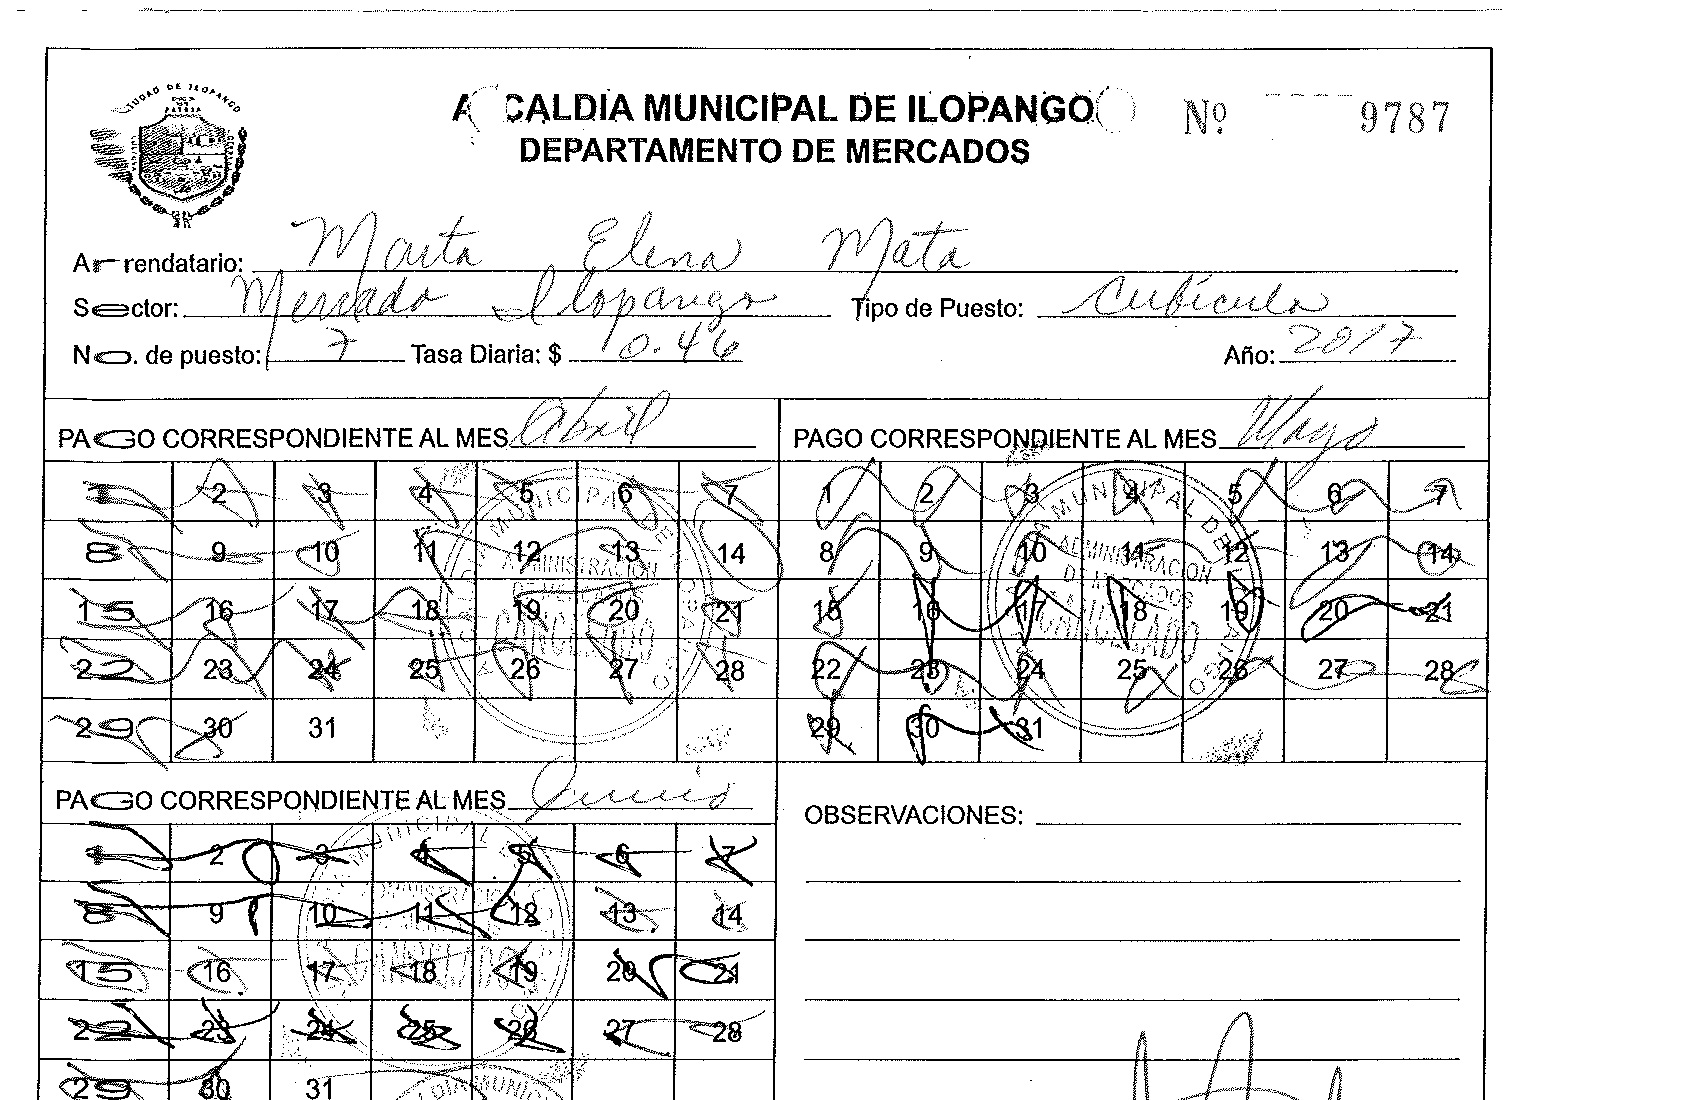 CIUDAD DE ILOPANGO
ALCALDIA MUNICIPAL DE ILOPANGO
Nº 9787
DEPARTAMENTO DE MERCADOS
Arrendatario: Marta Elena Mata
Sector: Mercado Ilopango Tipo de Puesto: Cubículo
No. de puesto: 7 Tasa Diaria: $ 0.46 Año: 2017
PAGO CORRESPONDIENTE AL MES Abril
1 2 3 4 5 6 7
8 9 10 11 12 13 14
15 16 17 18 19 20 21
22 23 24 25 26 27 28
29 30 31
ADMINISTRACION
CANCELADO
PAGO CORRESPONDIENTE AL MES Mayo
1 2 3 4 5 6 7
8 9 10 11 12 13 14
15 16 17 18 19 20 21
22 23 24 25 26 27 28
29 30 31
ADMINISTRACION
DE MERCADOS
CANCELADO
PAGO CORRESPONDIENTE AL MES Junio
1 2 3 4 5 6 7
8 9 10 11 12 13 14
15 16 17 18 19 20 21
22 23 24 25 26 27 28
29 30 31
OBSERVACIONES: